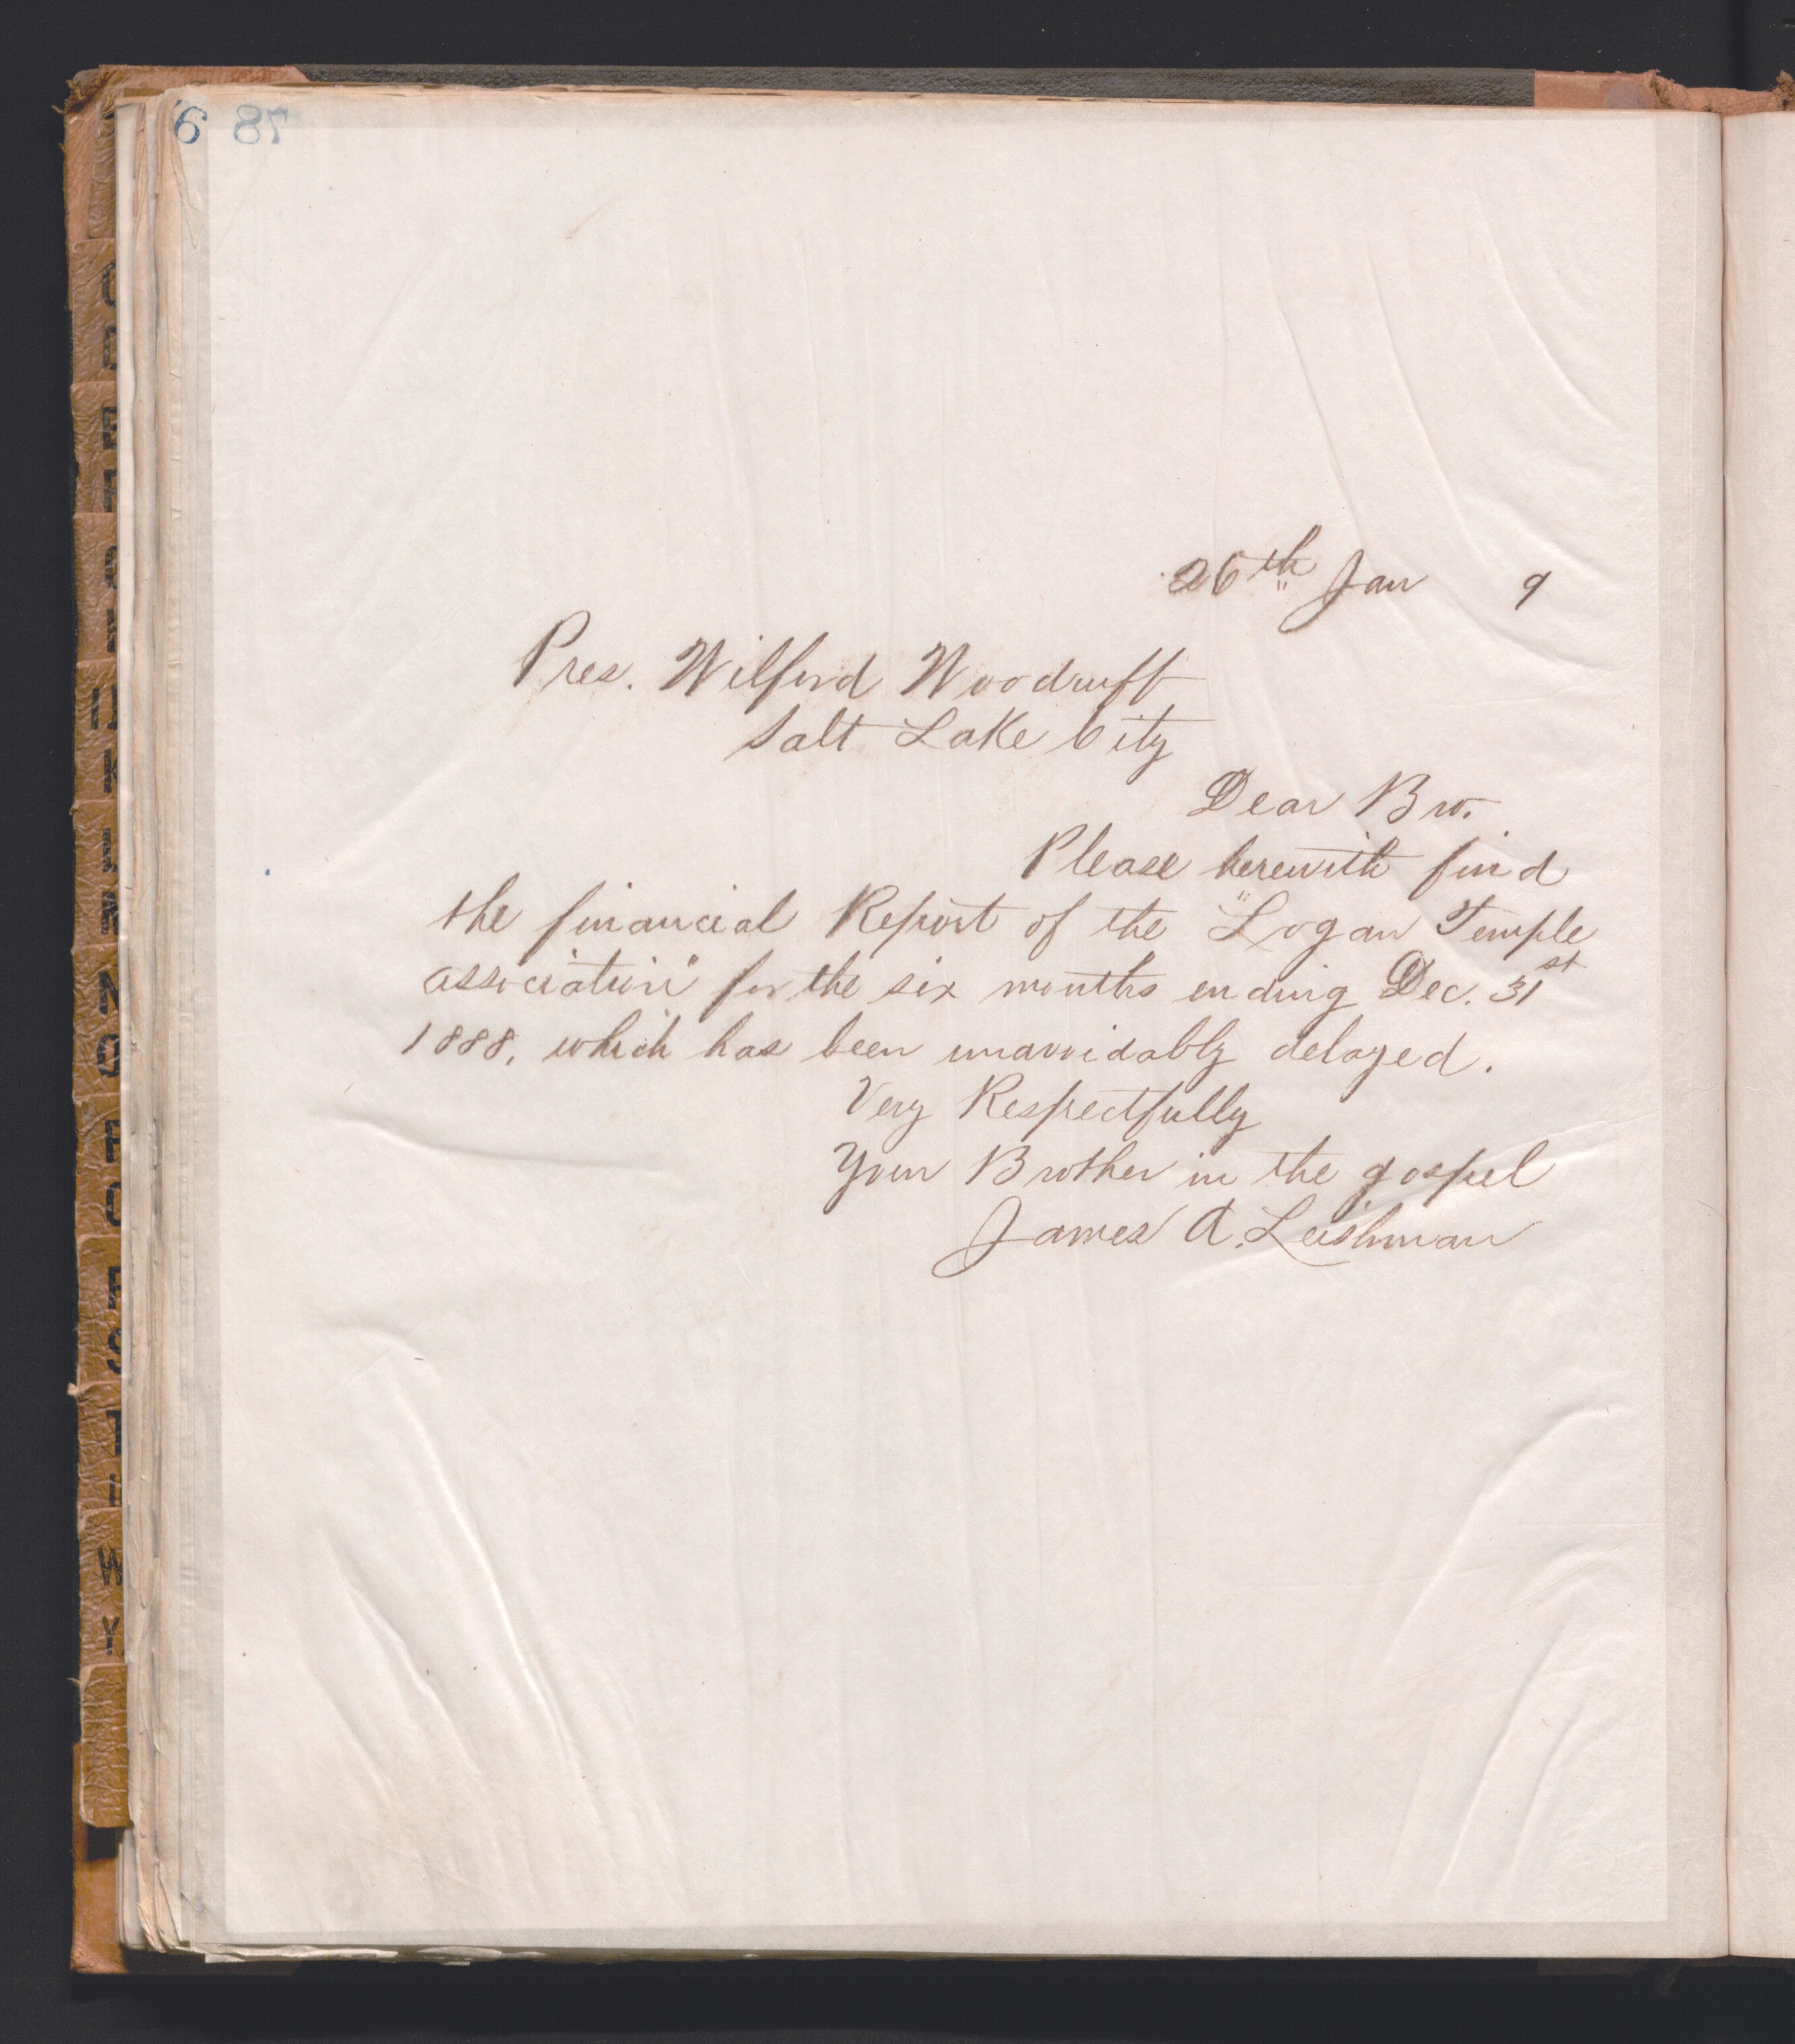 78
26th Jan 9
Pres. Wilford Woodruff
Salt Lake City
Dear Bro.
Please herewith find
the financial Report of the "Logan Temple
association" for the six months ending Dec. 31st
1888, which has been unavoidably delayed.
Very Respectfully
Your Brother in the gospel
James A. Leishman